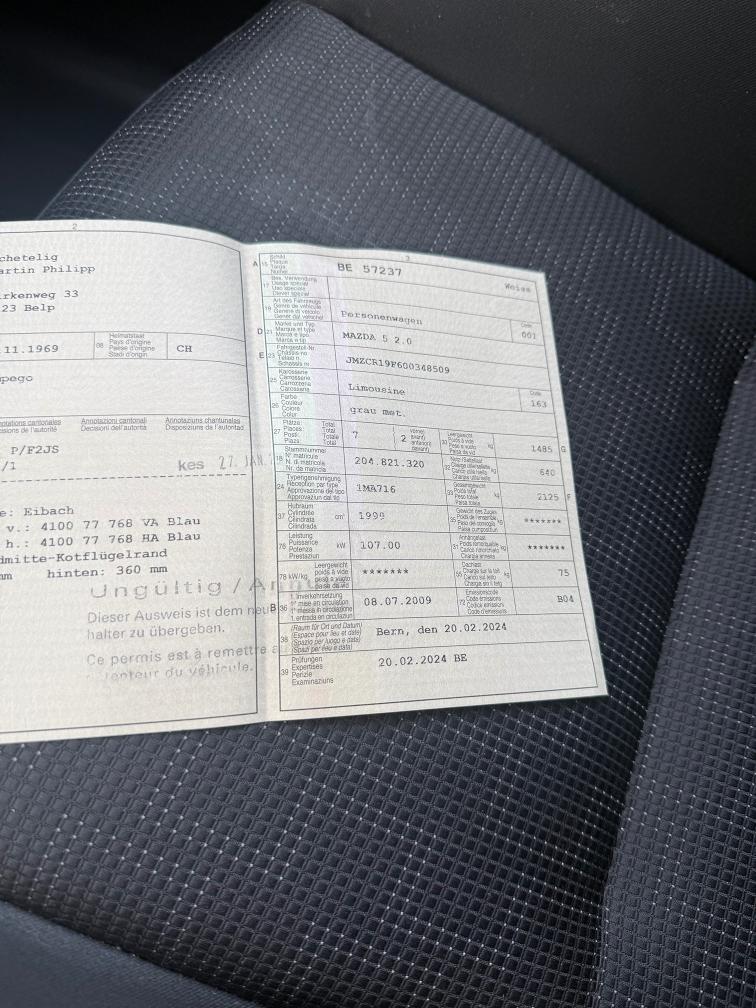 2
chetelig
artin Philipp
rkenweg 33
23 Belp
11.1969
08
Heimatstaat
Pays d'origine
Paese d'origine
Stadi d'origin
CH
pego
Annotazioni cantonali
Decisioni dell'autorità
Annotaziuns chantunalas
Disposiziuns da l'autoritad
P/F2JS
/1
kes 27. JAN.
e: Eibach
v.: 4100 77 768 VA Blau
h.: 4100 77 768 HA Blau
dmitte-Kotflügelrand
mm hinten: 360 mm
Ungültig / An
Dieser Ausweis ist dem neu
halter zu übergeben.
Ce permis est à remettre a
teur du véhicule.
3
A 15 Schild
Plaque
Targa
Numer
BE 57237
Weiss
17 Bes. Verwendung
Usage spécial
Uso speciale
Diever spezial
19 Art des Fahrzeugs
Genre de véhicule
Genere di veicolo
Gener dal vehichel
Personenwagen
Code
001
D 21 Marke und Typ
Marque et type
Marca e tipo
Marca e tip
MAZDA 5 2.0
E 23 Fahrgestell-Nr.
Châssis no
Telaio n.
Schassis nr.
JMZCR19F600348509
25 Karosserie
Carrosserie
Carrozzeria
Carossaria
Limousine
Code
163
26 Farbe
Couleur
Colore
Colur
grau met.
27 Plätze: Total
Places: Total
Posti: Totale
Plazs: Total
7
2
vorne)
avant)
anteriori)
davant)
30 Leergewicht
Poids à vide
Peso a vuoto
Paisa da vid
kg
1485 G
18 Stammnummer
N° matricule
N. di matricola
Nr. da matricla
204.821.320
32
kg
640
24 Typengenehmigung
Réception par type
Approvazione del tipo
Approvaziun dal tip
1MA716
33 Gesamtgewicht
Poids total
Peso totale
Paisa totala
kg
2125 F
37 Hubraum
Cylindrée
Cilindrata
Cilindrada
cm³
1999
35 Gewicht des Zuges
Poids de l'ensemble
Peso del convoglio
Paisa cumposiziun
kg
*******
76 Leistung
Puissance
Potenza
Prestaziun
kW
107.00
31 Anhängelast
kg
*******
78 kW/kg
Leergewicht
poids à vide
peso a vuoto
paisa da vid
*******
55 Dachlast
Charge sur le toit
Carico sul tetto
kg
75
B 36 1. Inverkehrsetzung
1re mise en circulation
1a messa in circolazione
1. entrada en circulaziun
08.07.2009
72 Emissionscode
Code émissions
Codice emissioni
Code d'emissiuns
B04
38 (Raum für Ort und Datum)
(Espace pour lieu et date)
(Spazio per luogo e data)
(Spazi per lieu e data)
Bern, den 20.02.2024
39 Prüfungen
Expertises
Perizie
Examinaziuns
20.02.2024 BE